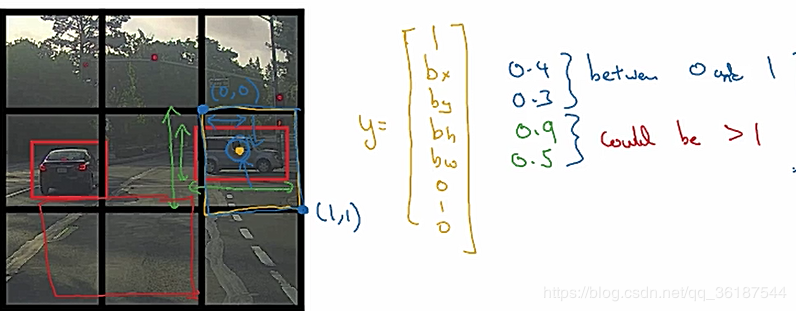 (0,0)
(1,1)
y=
1
bx
by
bh
bw
0
1
0
0.4
0.3
between 0 and 1
0.9
0.5
could be > 1
https://blog.csdn.net/qq_36187544